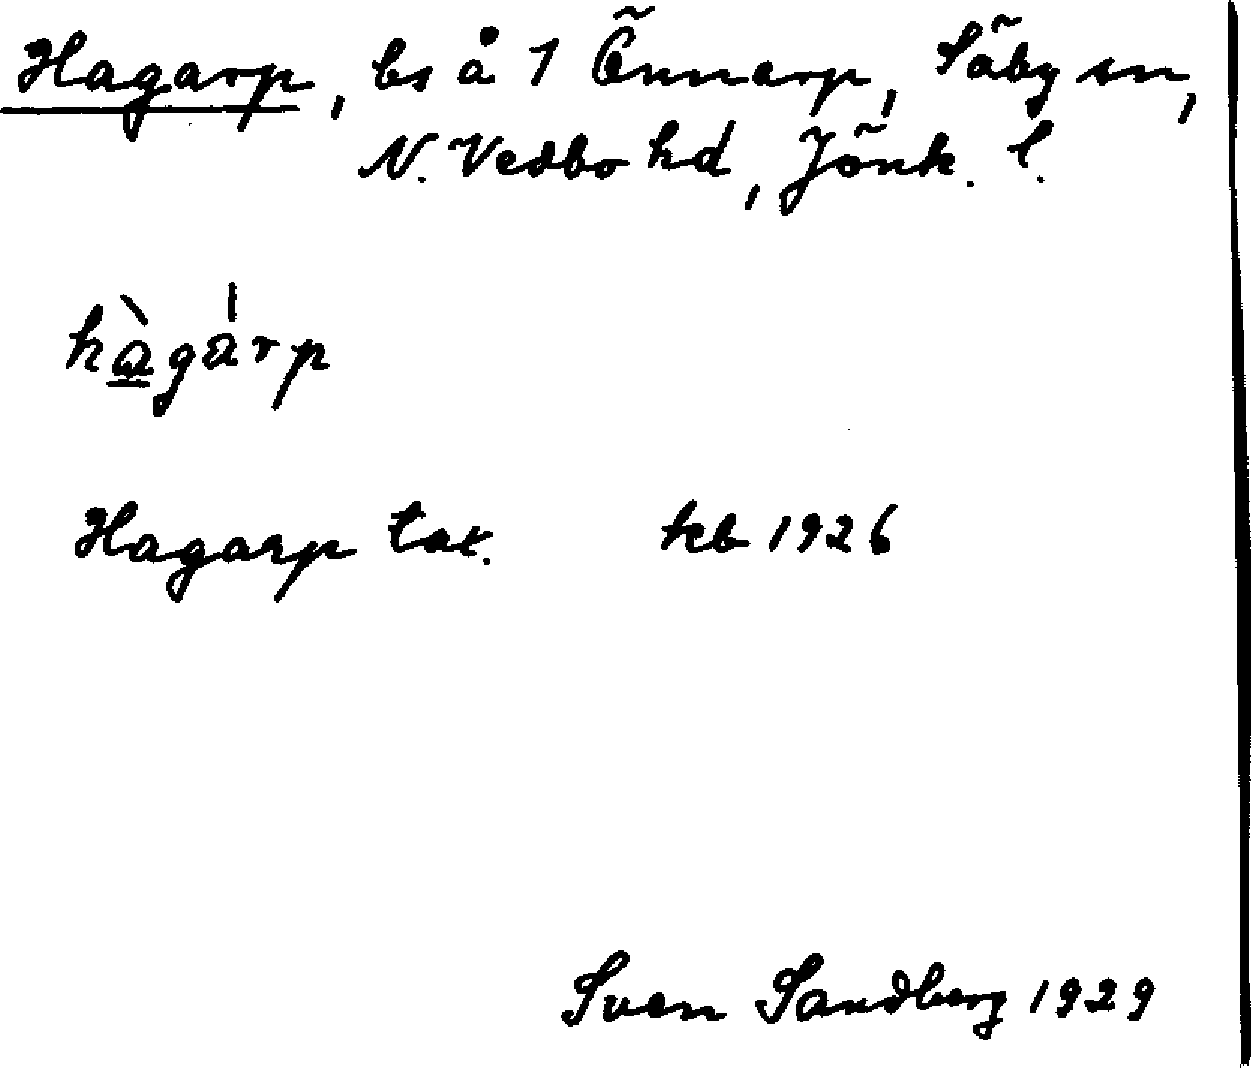 Hagarp, bs å 1 Õnnarp, Sãby sn,
N. Vedbo hd, Jõnk. l.
hàgárp
Hagarp tax. kb 1926
Sven Sandberg 1929